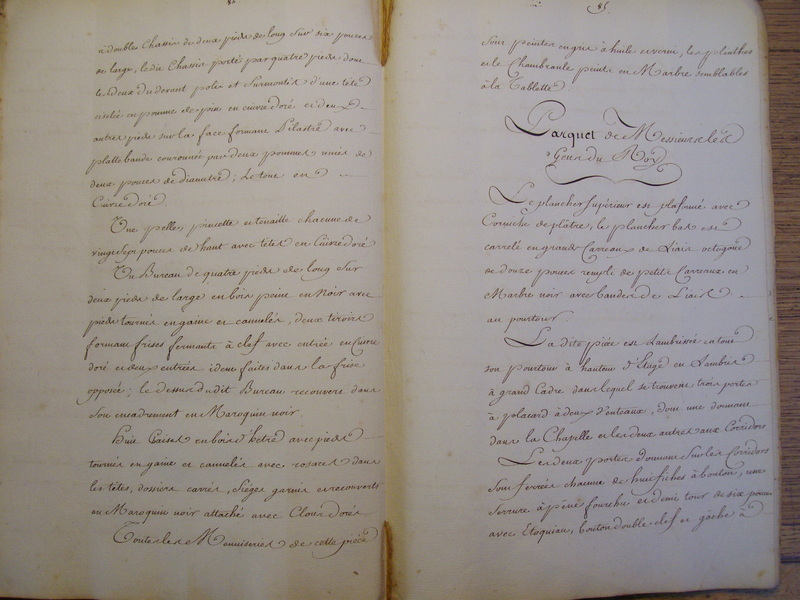 à doubles Chassis de deux pieds de long sur six pouces
de large, le dit Chassis porté par quatre pieds dont
les deux du devant polis et surmontés d'une tête
en pomme de pin en cuivre doré et deux
autres pieds sur la face formant Pilastre avec
platte bande couronnée par deux pommes unies de
deux pouces de diamêtre ; Le tout en
Cuivre doré.
Une pelle, pincette et tenaille chacune de
vingt sept pouces de haut avec têtes en Cuivre doré
Un Bureau de quatre pieds de long sur
deux pieds de large en bois peint en Noir avec
pieds tournés en gaine et cannelés, deux tiroirs
formant frises fermants à clef avec entrée en Cuivre
doré et deux entrées idem faites dans la frise
opposée ; le dessus dudit Bureau recouvert dans
son encadrement en Maroquin noir.
Huit Caises en bois d'hêtre avec pieds
tournés en gaine et cannelés avec rosaces dans
les têtes, dossiers carrés, sièges garnis et recouverts
en Maroquin noir attaché avec Clous dorés
Toutes les Menuiseries de cette pièce
85.
sont peintes en gris à huile et verni, les plinthes
et le Chambranle peints en Marbre semblables
à la Tablette
Parquet de Messieurs les
Gens du Roy
Le plancher supérieur est plafonné avec
Corniche de plâtre, le plancher bas est
carrelé en grands Carreaux de Liais octogone
de douze pouces remplis de petits Carreaux en
Marbre noir avec bandes de Liais
au pourtour.
La dite pièce est Lambrissée en tout
son pourtour à hauteur d'Etage en Lambris
à grand Cadre dans lequel se trouvent trois portes
à placard à deux Vanteaux, dont une donnant
dans la Chapelle et les deux autres aux Corridors
Les deux portes donnant sur les Corridors
sont ferrées chacune de huit fiches à bouton, une
serrure à pêne fourchu et demi tour de six pouces
avec bouton double clef et gâche à